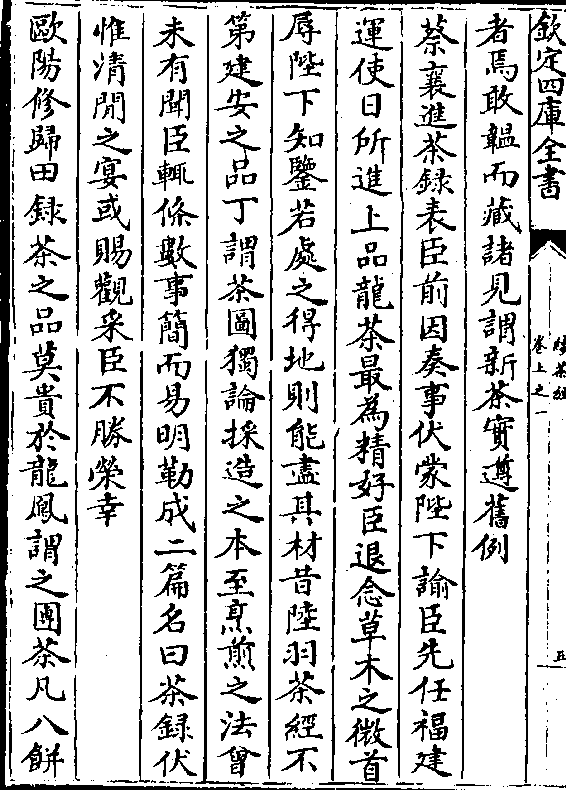 欽定四庫全書
續茶經
卷上之一
五
者焉敢韞而藏諸見謂新茶實遵舊例
蔡襄進茶録表臣前因奏事伏蒙陛下諭臣先任福建
運使日所進上品龍茶最為精好臣退念草木之微首
辱陛下知鑒若處之得地則能盡其材昔陸羽茶經不
第建安之品丁謂茶圖獨論採造之本至烹煎之法曾
未有聞臣輒條數事簡而易明勒成二篇名曰茶録伏
惟清閒之宴或賜觀采臣不勝榮幸
歐陽修歸田録茶之品莫貴於龍鳳謂之團茶凡八餅